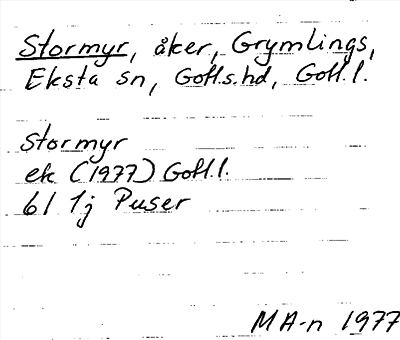 Stormyr, åker, Grymlings,
Eksta sn, Gotl.s.hd, Gotl.l.
Stormyr
ek (1977) Gotl.l.
6I 1j Puser
MA-n 1977